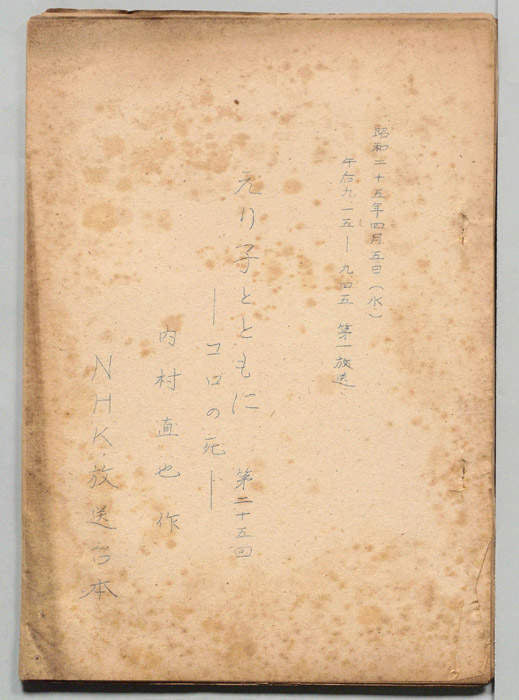 昭和二十五年四月五日(水)
午后九一五―九四五 第一放送
えり子とともに 第二十五回
―コロの死―
内村直也 作
NHK放送台本